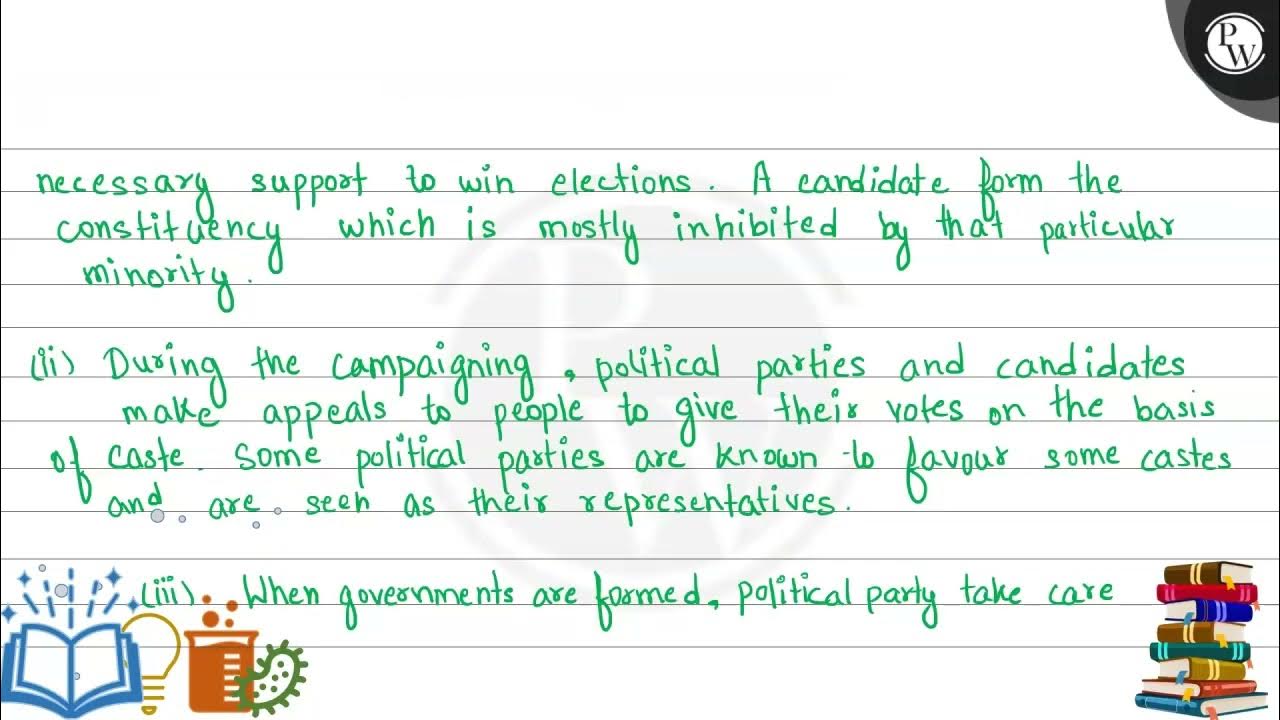 PW
necessary support to win elections. A candidate form the
constituency which is mostly inhibited by that particular
minority.
(ii) During the campaigning, political parties and candidates
make appeals to people to give their votes on the basis
of caste. Some political parties are known to favour some castes
and are seen as their representatives.
(iii) When governments are formed, political party take care